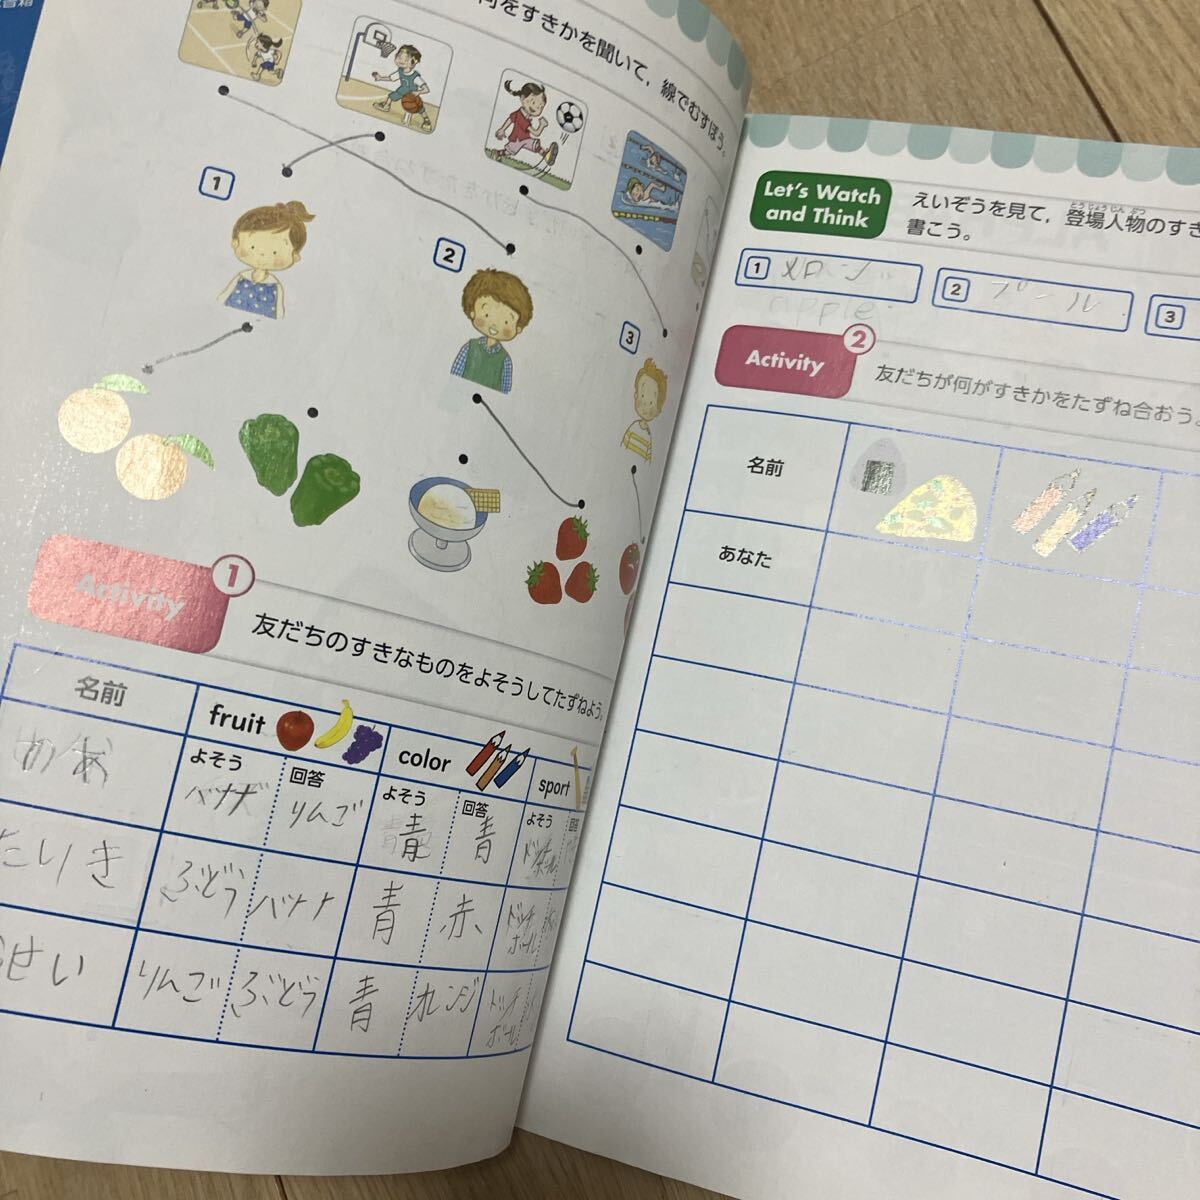 何をすきかを聞いて，線でむすぼう。
1
2
3
Activity 1
友だちのすきなものをよそうしてたずねよう。
名前
fruit
color
sport
よそう
回答
よそう
回答
よそう
回答
バナナ
りんご
青
青
たいき
ぶどう
バナナ
青
赤
ドッチ
ボール
せい
りんご
ぶどう
青
オレンジ
ドッチ
ボール
Let's Watch
and Think
えいぞうを見て，登場人物のすき
とうじょうじんぶつ
書こう。
1
メロン
apple
2
プール
3
Activity 2
友だちが何がすきかをたずね合おう。
名前
あなた